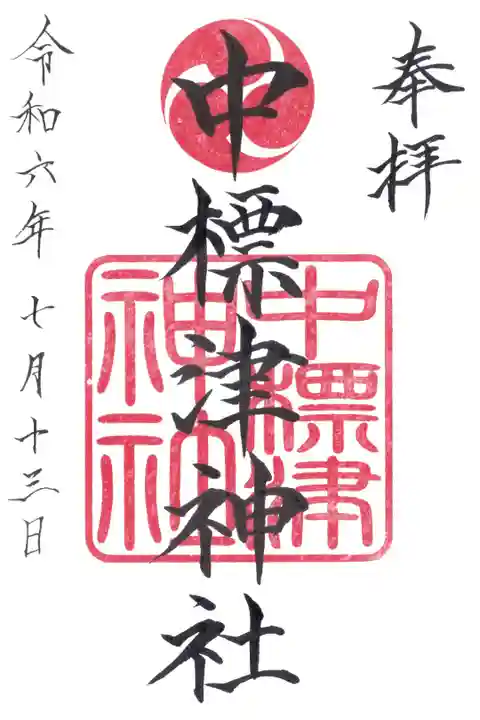 奉拝
中標津神社
中標津
神社
令和六年 七月十三日